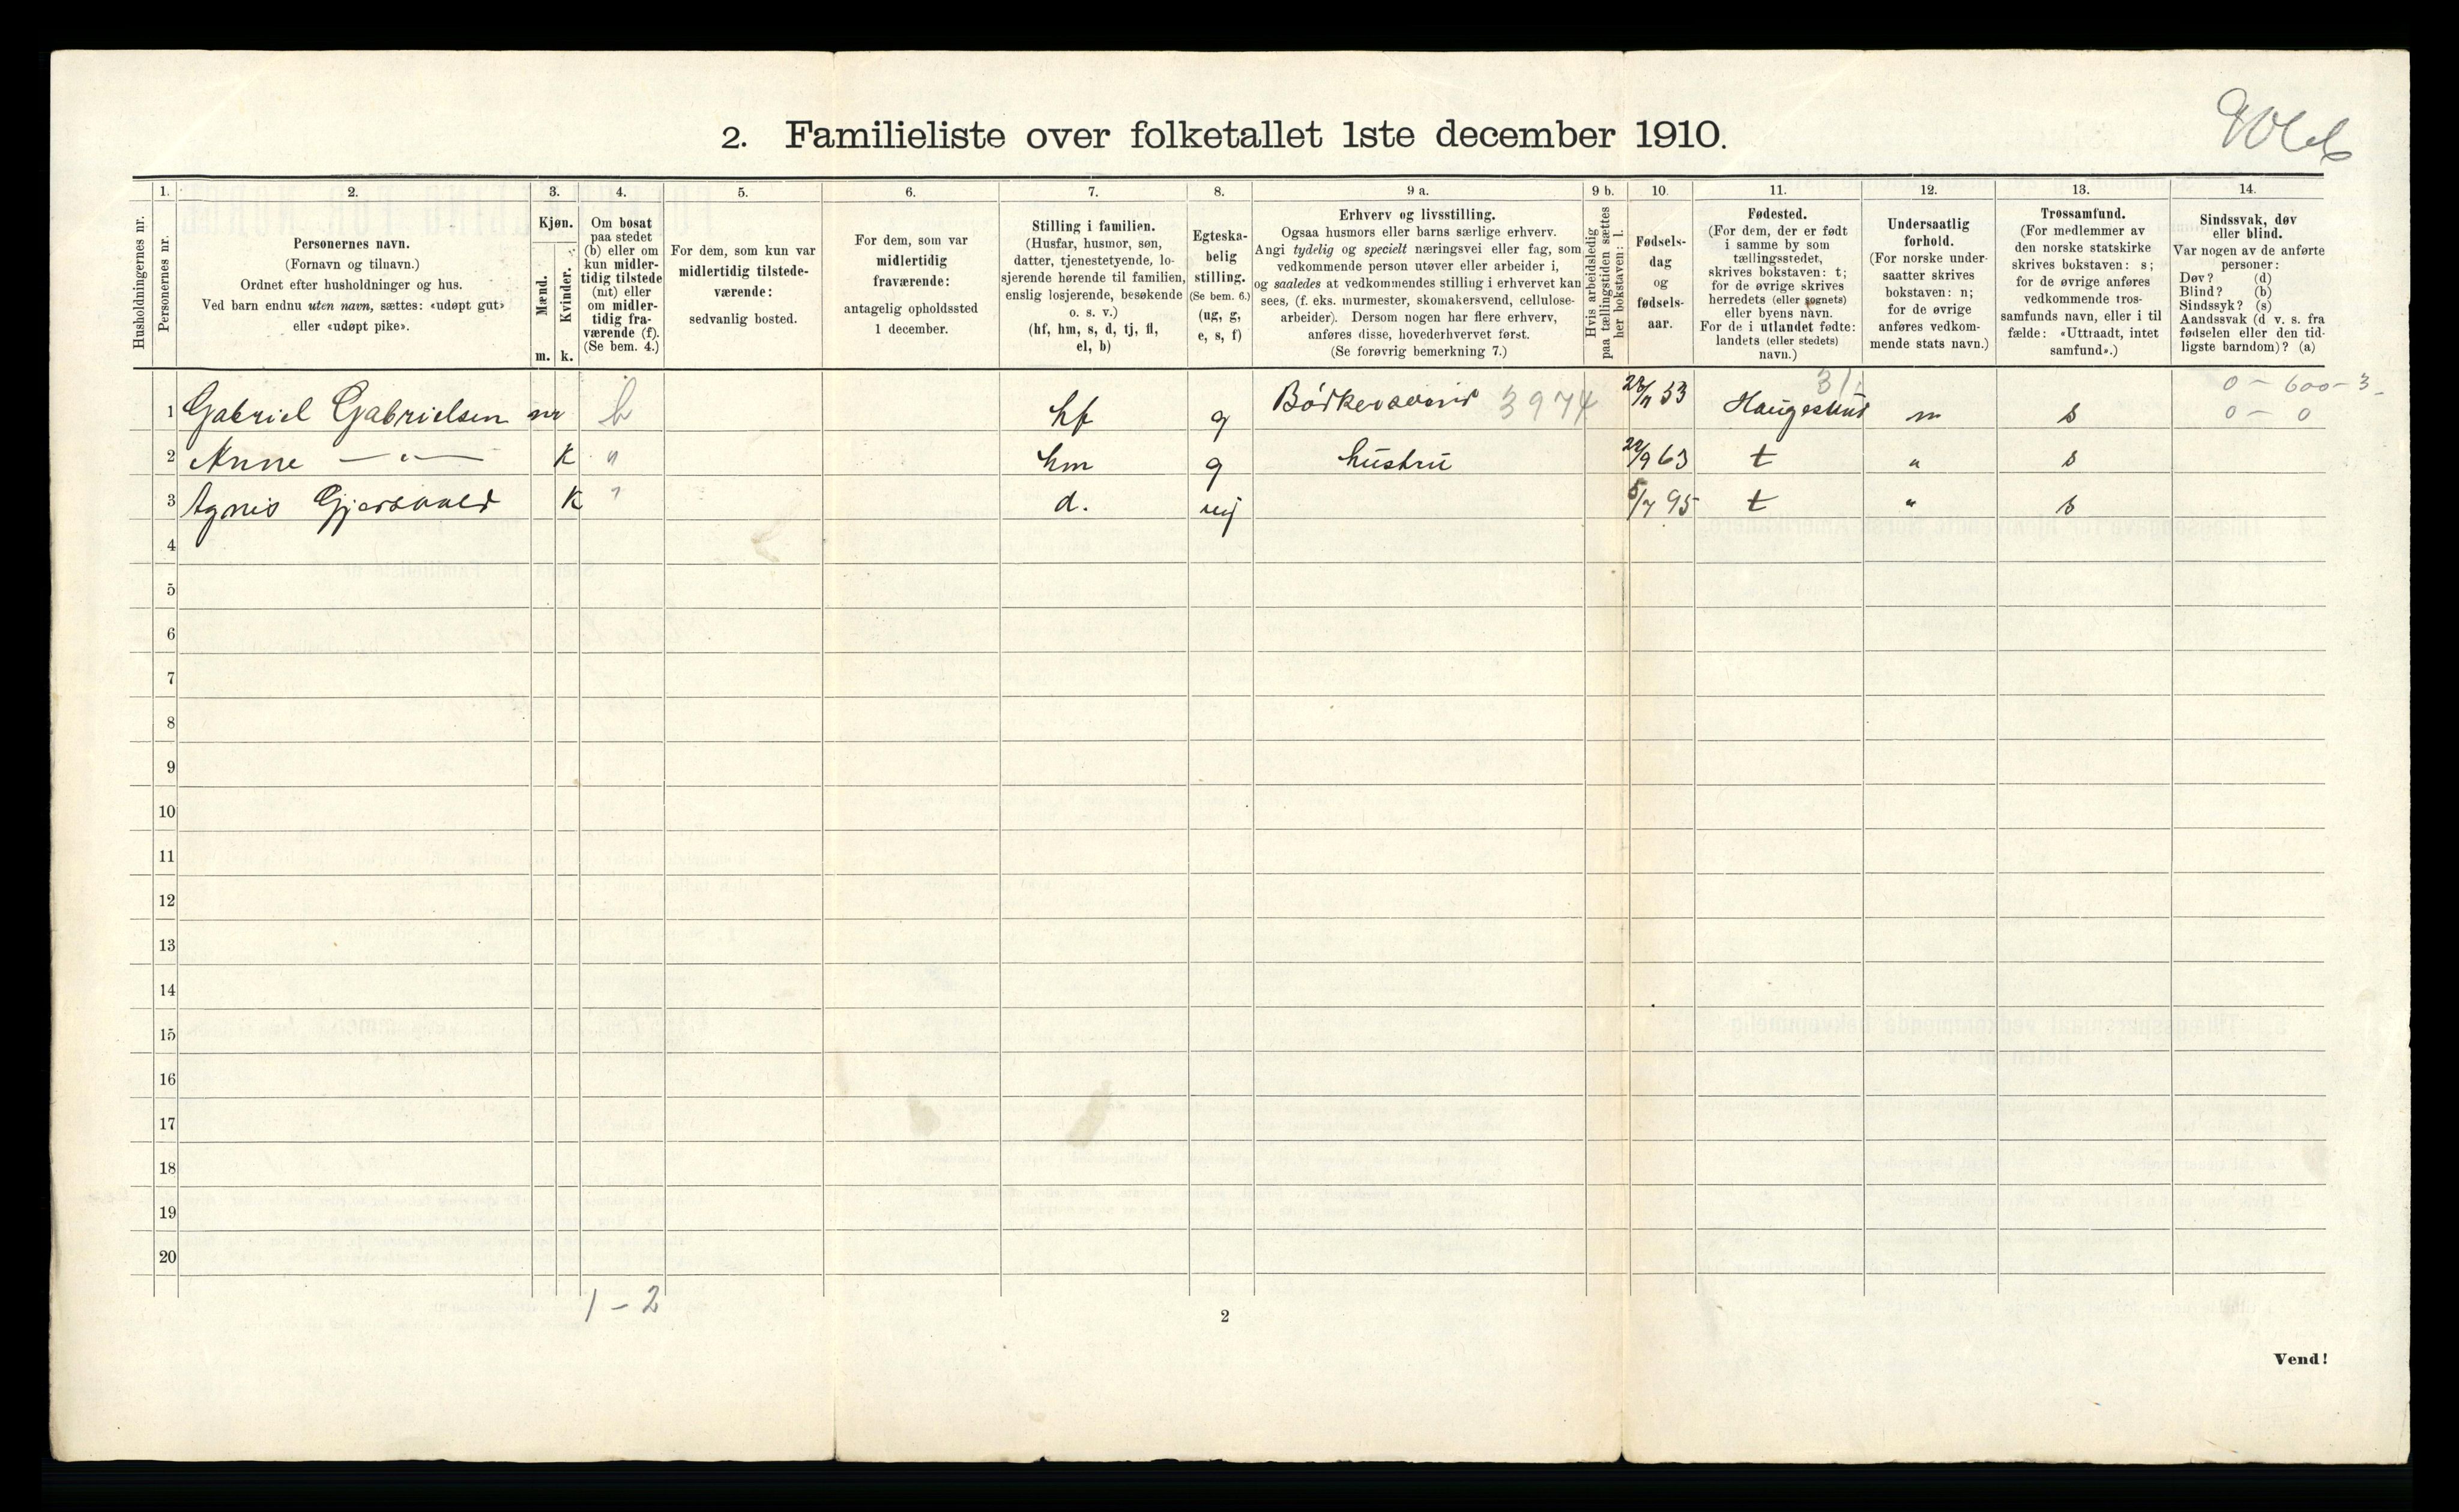 2. Familieliste over folketallet 1ste december 1910.
1. 2. 3. 4. 5. 6. 7. 8. 9 a. 9 b. 10. 11. 12. 13. 14.
Husholdningernes nr.
Personernes nr.
Personernes navn.
(Fornavn og tilnavn.)
Ordnet efter husholdninger og hus.
Ved barn endnu uten navn, sættes: «udøpt gut»
eller «udøpt pike».
Kjøn.
Mænd.
Kvinder.
m. k.
Om bosat
paa stedet
(b) eller om
kun midler-
tidig tilstede
(mt) eller
om midler-
tidig fra-
værende (f).
(Se bem. 4.)
For dem, som kun var
midlertidig tilstede-
værende:
sedvanlig bosted.
For dem, som var
midlertidig
fraværende:
antagelig opholdssted
1 december.
Stilling i familien.
(Husfar, husmor, søn,
datter, tjenestetyende, lo-
sjerende hørende til familien,
enslig losjerende, besøkende
o. s. v.)
(hf, hm, s, d, tj, fl,
el, b)
Egteska-
belig
stilling.
(Se bem. 6.)
(ug, g,
e, s, f)
Erhverv og livsstilling.
Ogsaa husmors eller barns særlige erhverv.
Angi tydelig og specielt næringsvei eller fag, som
vedkommende person utøver eller arbeider i,
og saaledes at vedkommendes stilling i erhvervet kan
sees, (f. eks. murmester, skomakersvend, cellulose-
arbeider). Dersom nogen har flere erhverv,
anføres disse, hovederhvervet først.
(Se forøvrig bemerkning 7.)
Hvis arbeidsledig
paa tællingstiden sættes
her bokstaven: l.
Fødsels-
dag
og
fødsels-
aar.
Fødested.
(For dem, der er født
i samme by som
tællingsstedet,
skrives bokstaven: t;
for de øvrige skrives
herredets (eller sognets)
eller byens navn.
For de i utlandet fødte:
landets (eller stedets)
navn.)
Undersaatlig
forhold.
(For norske under-
saatter skrives
bokstaven: n;
for de øvrige
anføres vedkom-
mende stats navn.)
Trossamfund.
(For medlemmer av
den norske statskirke
skrives bokstaven: s;
for de øvrige anføres
vedkommende tros-
samfunds navn, eller i til
fælde: «Uttraadt, intet
samfund».)
Sindssvak, døv
eller blind.
Var nogen av de anførte
personer:
Døv? (d)
Blind? (b)
Sindssyk? (s)
Aandssvak (d v. s. fra
fødselen eller den tid-
ligste barndom)? (a)
31. 0 - 600 - 3
1 Gabriel Gabrielsen m b hf g Bødkersvend 3974 53 Haugesund n s 0 - 0
2 Anne — " — K " hm g hustru 22/9 63 t " s
3 Agnis K " d. ug 5/7 95 t " s
4
5
6
7
8
9
10
11
12
13
14
15
16
17
18
19
20
1 - 2
2
Vend!